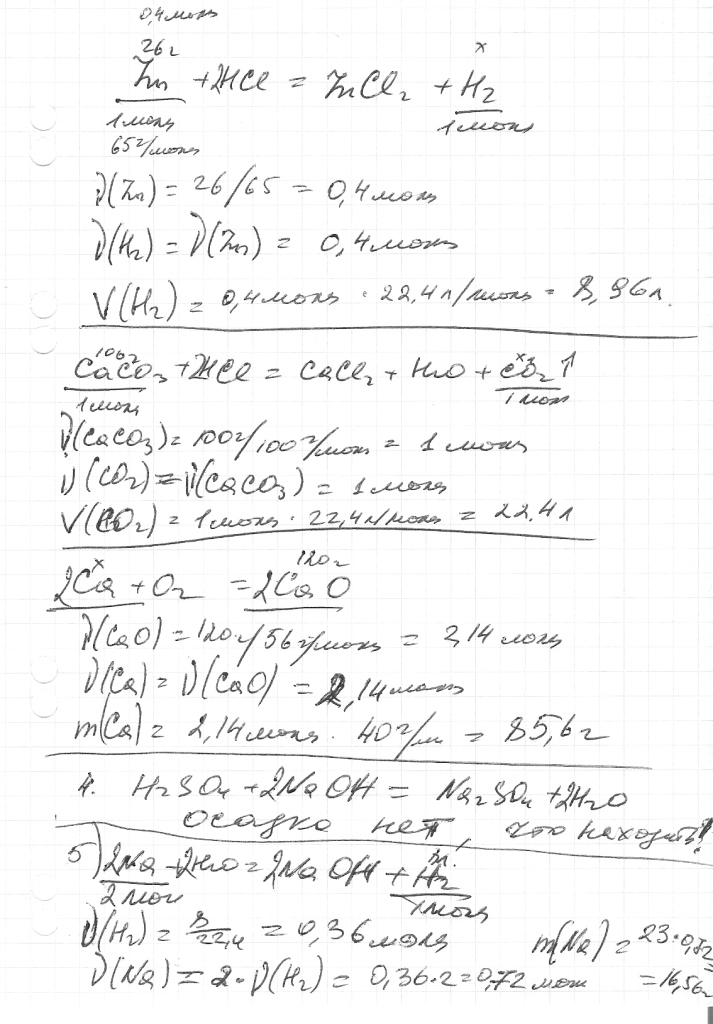 0,4 моль
26г x
Zn + 2HCl = ZnCl₂ + H₂
1 моль 1 моль
65г/моль
ν(Zn) = 26/65 = 0,4 моль
ν(H₂) = ν(Zn) = 0,4 моль
V(H₂) = 0,4 моль · 22,4 л/моль = 8,96 л.
100г x
CaCO₃ + 2HCl = CaCl₂ + H₂O + CO₂↑
1 моль 1 мол
ν(CaCO₃) = 100г/100г/моль = 1 моль
ν(CO₂) = ν(CaCO₃) = 1 моль
V(CO₂) = 1 моль · 22,4 л/моль = 22,4 л
x 120г
2Ca + O₂ = 2CaO
ν(CaO) = 120г/56г/моль = 2,14 моль
ν(Ca) = ν(CaO) = 2,14 моль
m(Ca) = 2,14 моль · 40г/м = 85,6г
4. H₂SO₄ + 2NaOH = Na₂SO₄ + 2H₂O
осадка нет, что находить?
5) 2Na + 2H₂O = 2NaOH + H₂
2 мол 1 моль
ν(H₂) = 8/22,4 = 0,36 моль m(Na) = 23·0,72 =
ν(Na) = 2·ν(H₂) = 0,36·2 = 0,72 мол = 16,56г